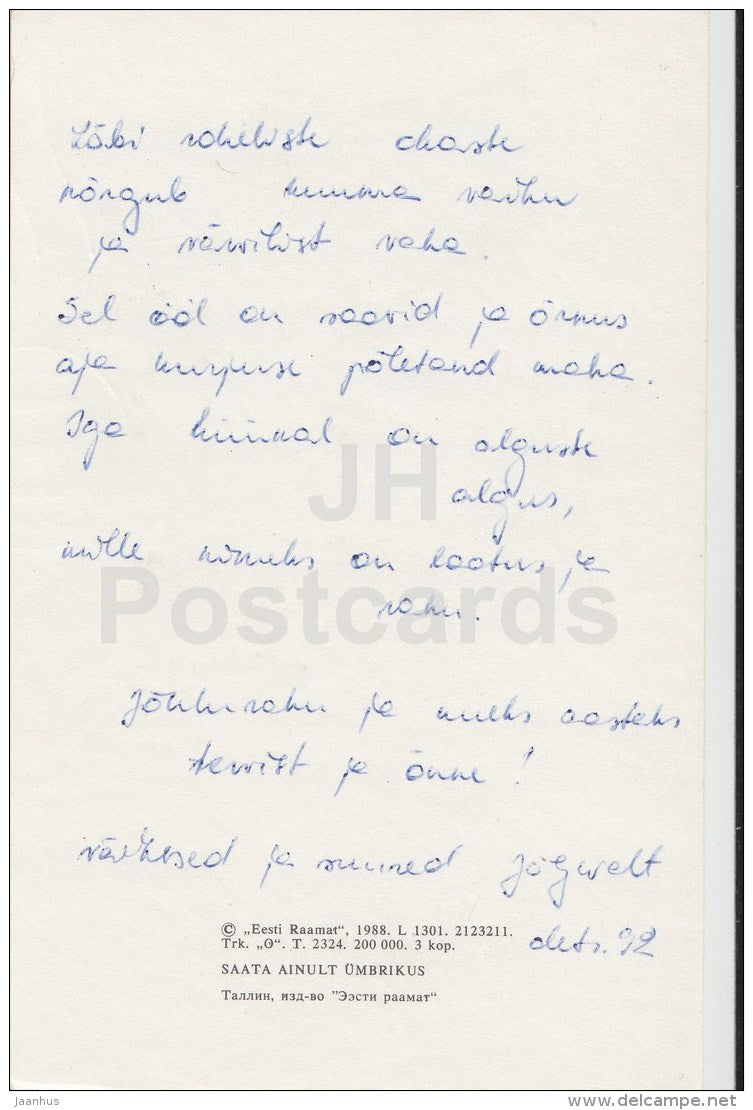 Läbi roheliste okaste
nõrgub kumma vaiku
ja värvilist vaha.
Sel ööl on soovid ja õrnus
aja kurjuse põletand maha.
Iga küünal on alguste
algus,
mille nimeks on lootus ja
rahu.
Jõulurahu ja uueks aastaks
tervist ja õnne!
väikesed ja suured
dets. 92
© „Eesti Raamat“, 1988. L 1301. 2123211.
Trk. „O“. T. 2324. 200 000. 3 kop.
SAATA AINULT ÜMBRIKUS
Таллин, изд-во "Ээсти раамат"
JH
Postcards
Jaanhus
delcampe.net